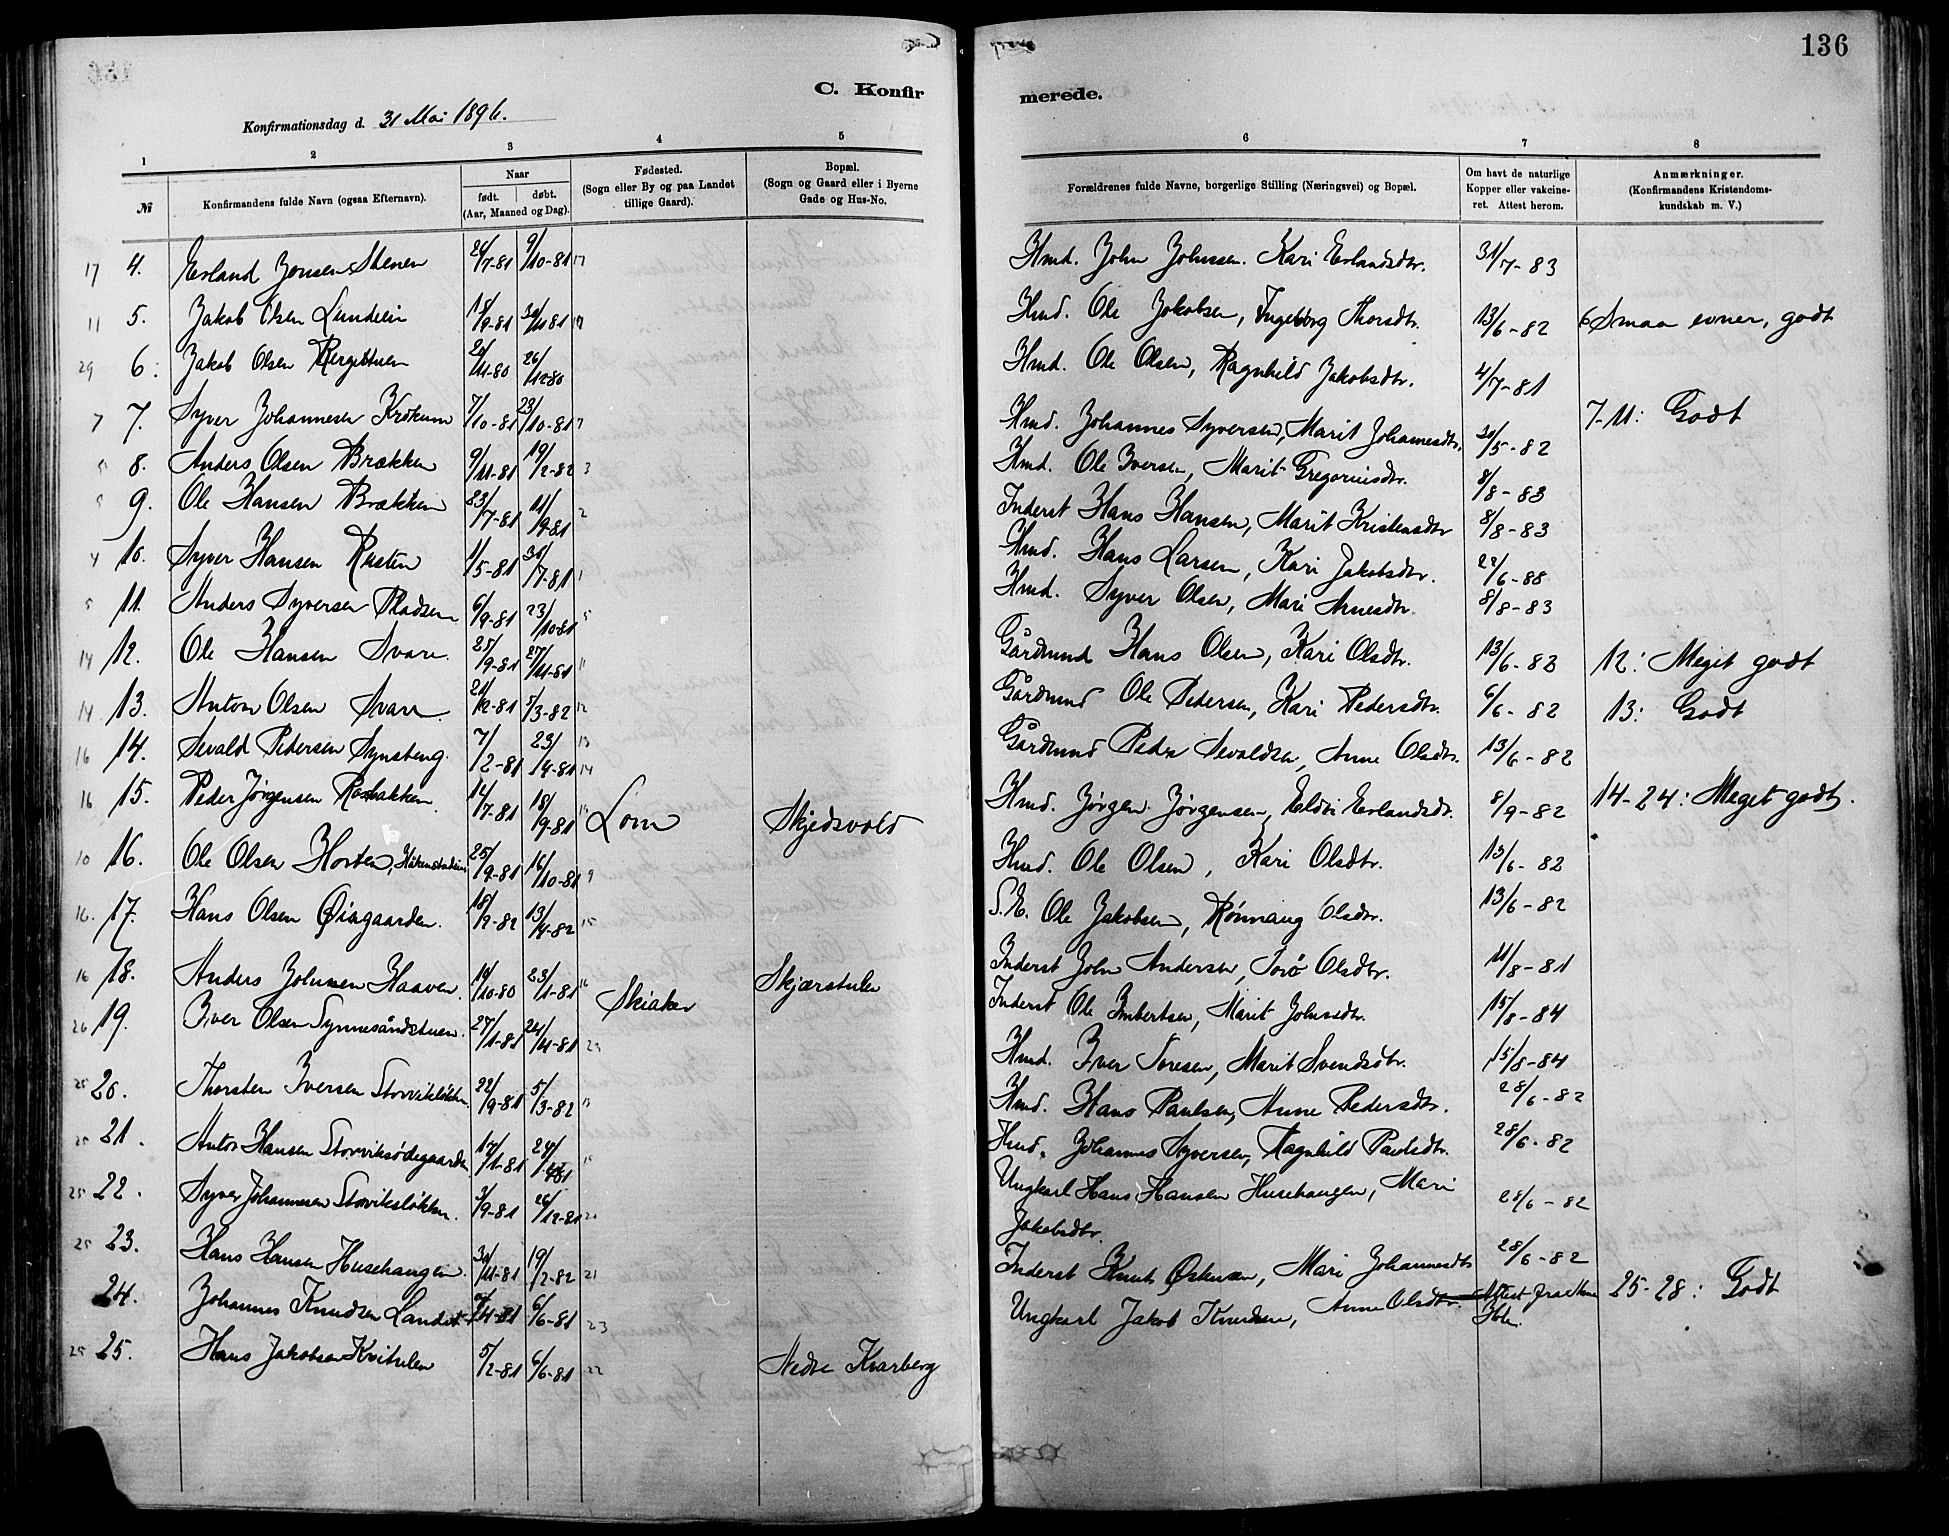 136
C. Konfir
merede.
Konfirmationsdag d. 31 Mai 1896.
1 2 3 4 5
6 7 8
№
Konfirmandens fulde Navn (ogsaa Efternavn).
Naar
født. døbt.
(Aar, Maaned og Dag).
Fødested.
(Sogn eller By og paa Landet
tillige Gaard).
Bopæl.
(Sogn og Gaard eller i Byerne
Gade og Hus-No.
Forældrenes fulde Navne, borgerlige Stilling (Næringsvei) og Bopæl.
Om havt de naturlige
Kopper eller vakcine-
ret. Attest herom.
Anmærkninger.
(Konfirmandens Kristendoms-
kundskab m. V.)
17 4. Erland Jonsen Stenen 24/7-81 9/10-81 17
11 5. Jakob Olsen Lundeie 18/9-81 30/11 81
29 6. Jakob Olsen Bergestuen /11-80 26/12 80
7 7. Syver Johannesen Krokum 7/10-81 23/10-81 7
8. Anders Olsen Brækken 9/11-81 19/2-82 3
9. Ole Hansen Brækken 23/7-81 11/9-81 2
4 10. Syver Hansen Rusten 11/5-81 30/7-81 1
5 11. Anders Syversen Pladsen 6/9-81 23/10-81 5
14 12. Ole Hansen Svare. 25/9-81 27/11-81 11
14 13. Anton Olsen Svare. 21/12-81 5/3-82 12
16 14. Sevald Pedersen Synsteng. 7/2-81 23/4-81 13
16 15. Peder Jørgensen Rosbakken 14/7-81 18/9-81 14 Lom Skjedsvold
10 16. Ole Olsen Horten, Håkenstadeie 25/9-81 16/10-81 9
16. 17. Hans Olsen Øiagaarden. 18/2-82 13/4-82 15
16 18. Anders Johnsen Haaven. 19/10-80 23/1-81 16 Skiaker Skjærstulen
26 19. Iver Olsen Synnesåndstuen. 27/1-81 24/4-81 23
25 20. Thorsten Iversen Storvikløkken. 22/9-81 5/3-82
25 21. Anton Hansen Storviksødegaarden 17/1-81 24/4 81
25 22. Syver Johannesen Storviksløkken. /9-81 26/12-81 20
25 23. Hans Hansen Husehaugen. 30/11-81 19/2-82 21
24. Johannes Knudsen Landet /4-81 6/6-81 23
25 25. Hans Jakobsen Kvitulen 5/2-81 6/6-81 22 Nedre Kvarberg
Hmd. John Johnsen. Kari Erlandsdtr. 31/7-83
Hmd. Ole Jakobsen, Ingeborg Thorsdtr. 13/6-82 Smaa evner, godt
Hmd. Ole Olsen, Ragnhild Jakobsdtr. 4/7-81
7-11: Godt
Hmd. Johannes Syversen, Marit Johannesdtr. 30/5-82
Hmd. Ole Iversen, Marit Gregoriusdtr. 8/8-83
Inderst Hans Hansen, Marit Kristensdtr 8/8-83
Hmd. Hans Larsen, Kari Jakobsdtr. 22/6-88
Hmd. Syver Olsen, Mari Arnesdtr. 8/8-83
Gårdmd Hans Olsen, Kari Olsdtr. 13/6-83 12: Meget godt
Gårdmd Ole Pedersen, Kari Pedersdtr. 6/6-82 13: Godt
Gårdmd Peder Sevaldsen, Anne Olsdtr. 13/6-82
Hmd. Jørgen Jørgensen, Eldri Erlandsdtr. 8/9-82 14-24: Meget godt.
Hmd. Ole Olsen, Kari Olsdtr. 13/6-82
S.E. Ole Jakobsen, Rønnaug Olsdtr. 13/6-82
Inderst John Andersen, Torø Olsdtr. 11/8-81
Inderst Ole Imbertsen, Marit Johnsdtr. 15/8-84
Hmd. Iver Toresen, Marit Svendsdtr. 15/8-84
Hmd. Hans Paulsen, Anne Pedersdtr. 28/6-82
Hmd. Johannes Syversen, Ragnhild Paulsdtr. 28/6-82
Ungkarl Hans Hansen Husehaugen, Mari 28/6-82
Jakobsdtr.
Inderst Knut Østensen, Mari Johannesdtr 28/6-82
Ungkarl Jakob Knudsen, Anne Olsdtr. Attest 25-28: Godt